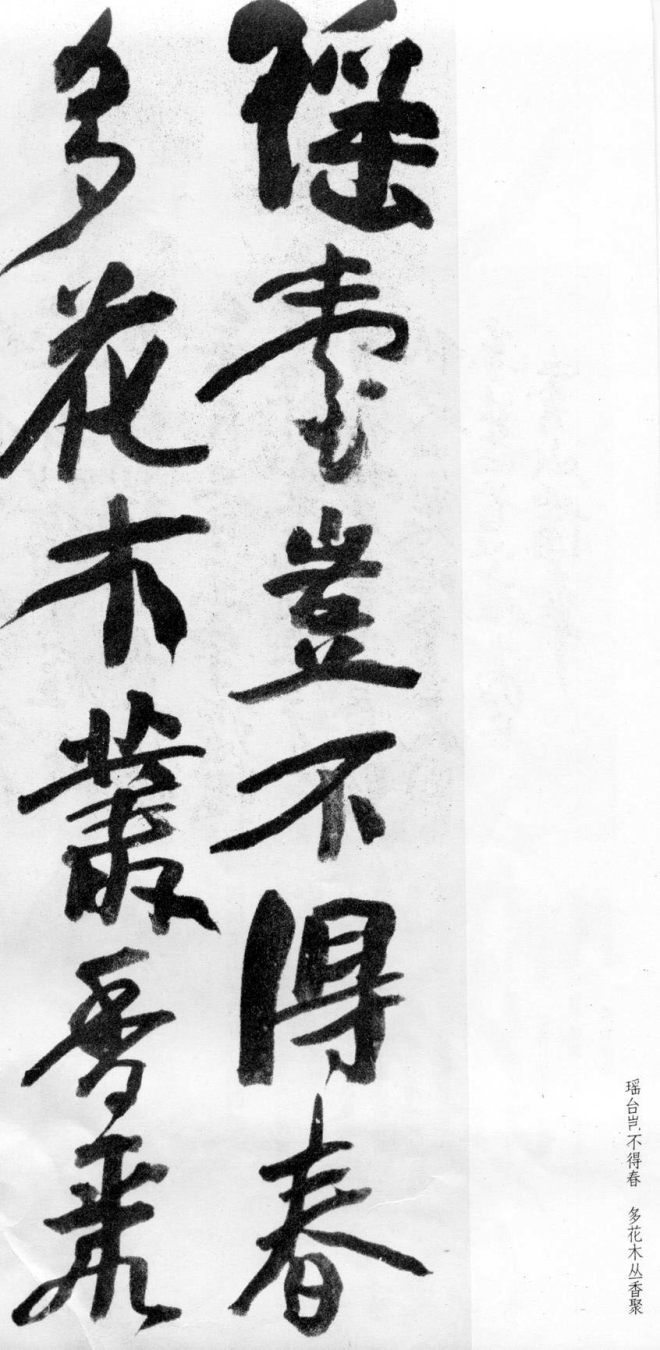 瑶台岂不得春　多花木丛香聚
瑶臺豈不得春
多花木叢香聚